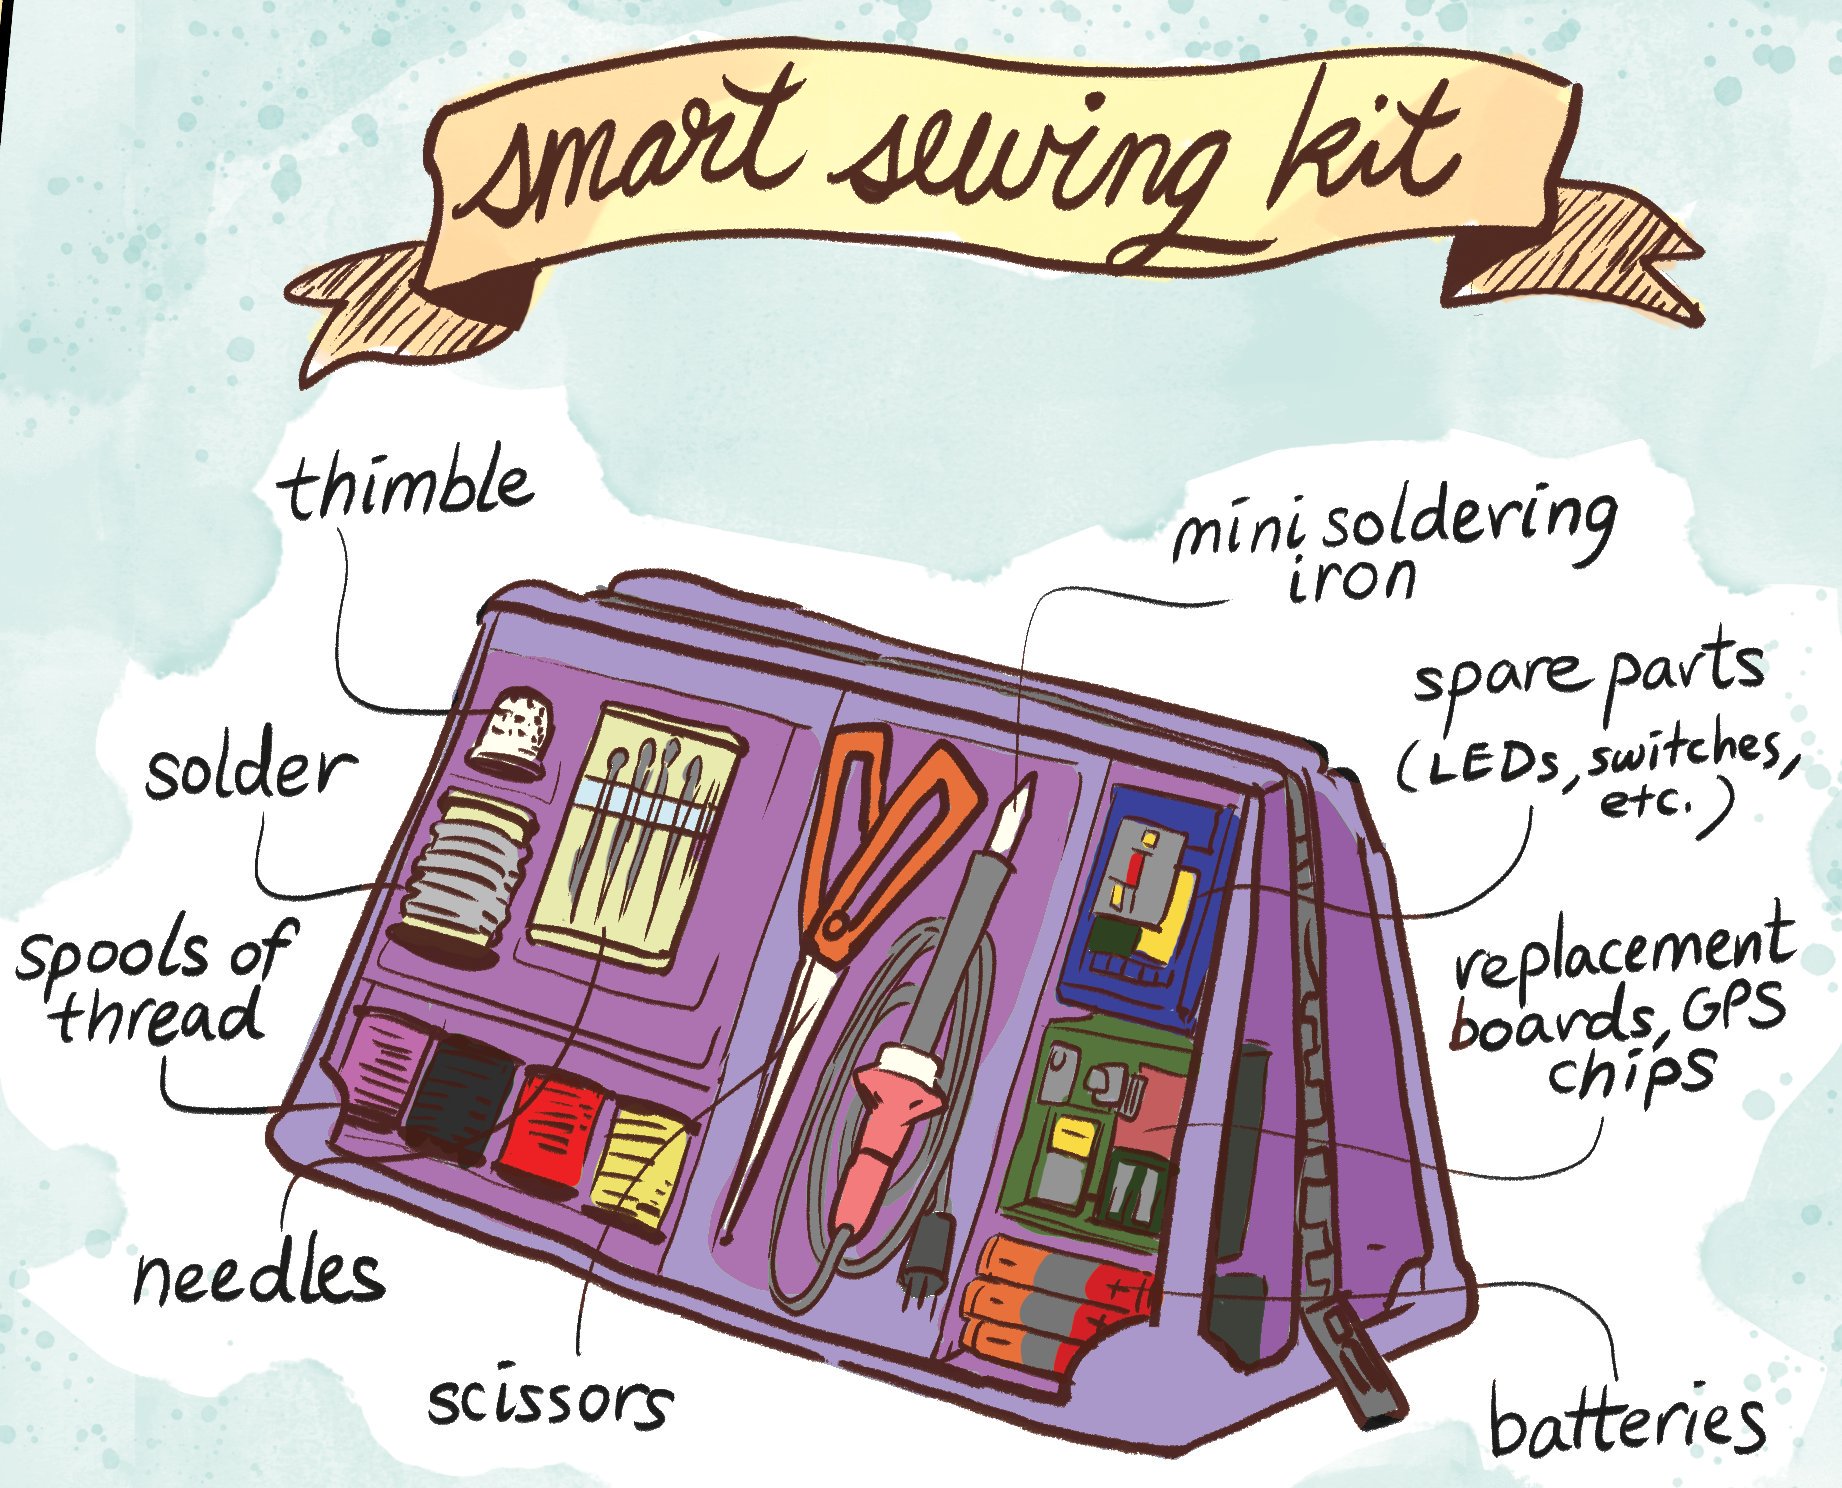 smart sewing kit
thimble
solder
spools of
thread
needles
scissors
mini soldering
iron
spare parts
(LEDs, switches,
etc.)
replacement
boards, GPS
chips
batteries